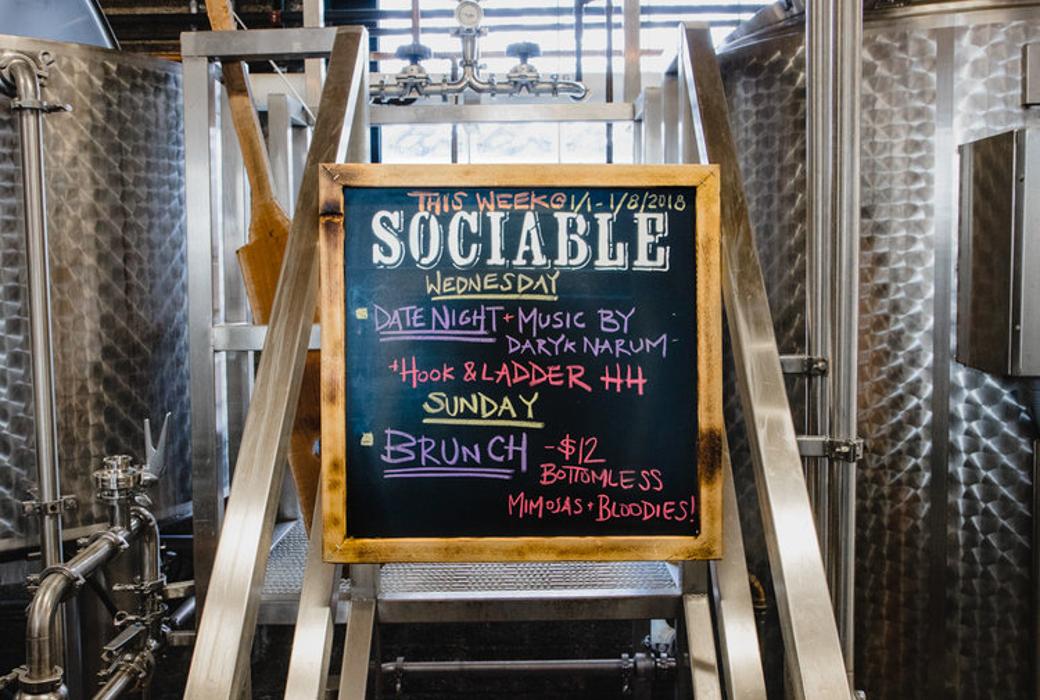 THIS WEEK@ 1/1 - 1/8/2018
SOCIABLE
WEDNESDAY
DATE NIGHT + MUSIC BY
DARYK NARUM
+HOOK & LADDER HH
SUNDAY
BRUNCH - $12
BOTTOMLESS
MIMOSAS + BLOODIES!